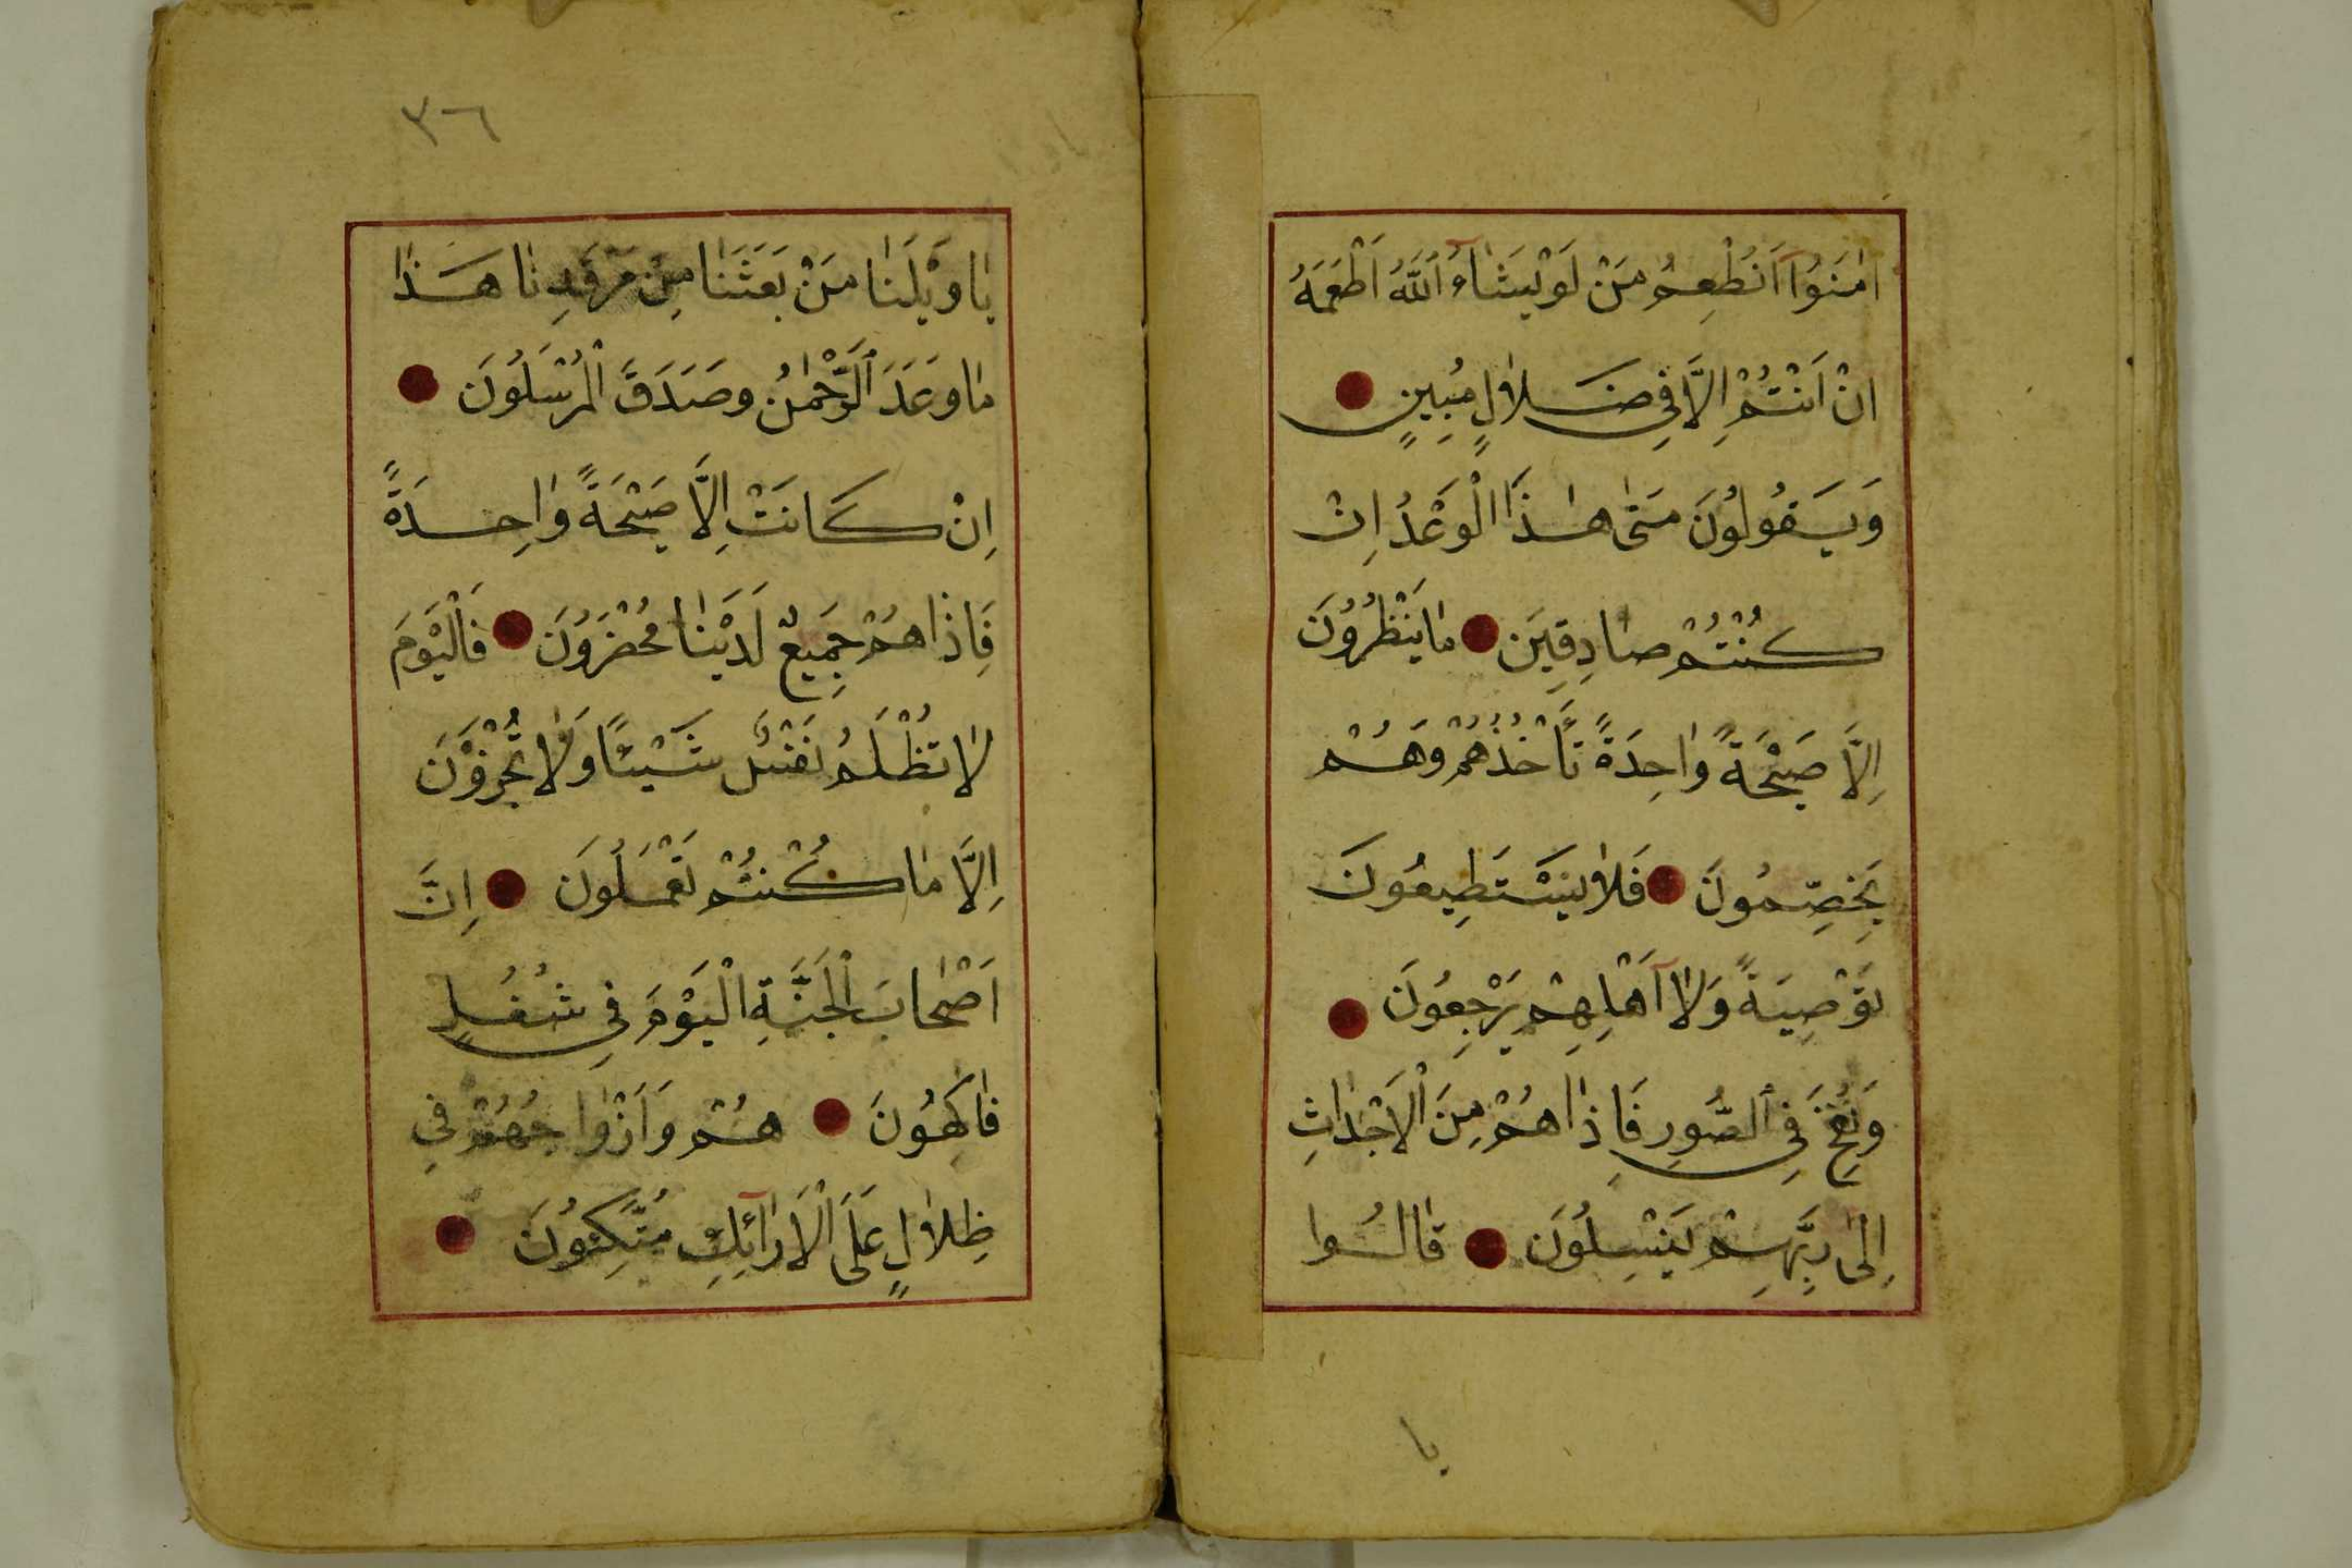 اٰمَنُوٓا اَنُطْعِمُ مَنْ لَوْ يَشَٓاءُ اللّٰهُ اَطْعَمَهُ
اِنْ اَنْتُمْ اِلَّا فِي ضَلَالٍ مُبِينٍ
وَيَقُولُونَ مَتٰى هٰذَا الْوَعْدُ اِنْ
كُنْتُمْ صَادِقِينَ ما يَنْظُرُونَ
اِلَّا صَيْحَةً وَاحِدَةً تَأْخُذُهُمْ وَهُمْ
يَخِصِّمُونَ فَلَا يَسْتَطِيعُونَ
تَوْصِيَةً وَلَآ اَهْلِهِمْ يَرْجِعُونَ
وَنُفِخَ فِي الصُّورِ فَاِذَا هُمْ مِنَ الْاَجْدَاثِ
اِلٰى رَبِّهِمْ يَنْسِلُونَ قَالُوا
يا
٣٦
يَا وَيْلَنَا مَنْ بَعَثَنَا مِنْ مَرْقَدِنَا هَذَا
مَا وَعَدَ الرَّحْمٰنُ وصَدَقَ الْمُرْسَلُونَ
اِنْ كَانَتْ اِلَّا صَيْحَةً وَاحِدَةً
فَاِذَا هُمْ جَمِيعٌ لَدَيْنَا مُحْضَرُونَ فَالْيَوْمَ
لَا تُظْلَمُ نَفْسٌ شَيْئًا وَلَا تُجْزَوْنَ
اِلَّا مَا كُنْتُمْ تَعْمَلُونَ اِنَّ
اَصْحَابَ الْجَنَّةِ الْيَوْمَ فِي شُغُلٍ
فَاكِهُونَ هُمْ وَاَزْوَاجُهُمْ فِي
ظِلَالٍ عَلَى الْاَرَٓائِكِ مُتَّكِئُونَ